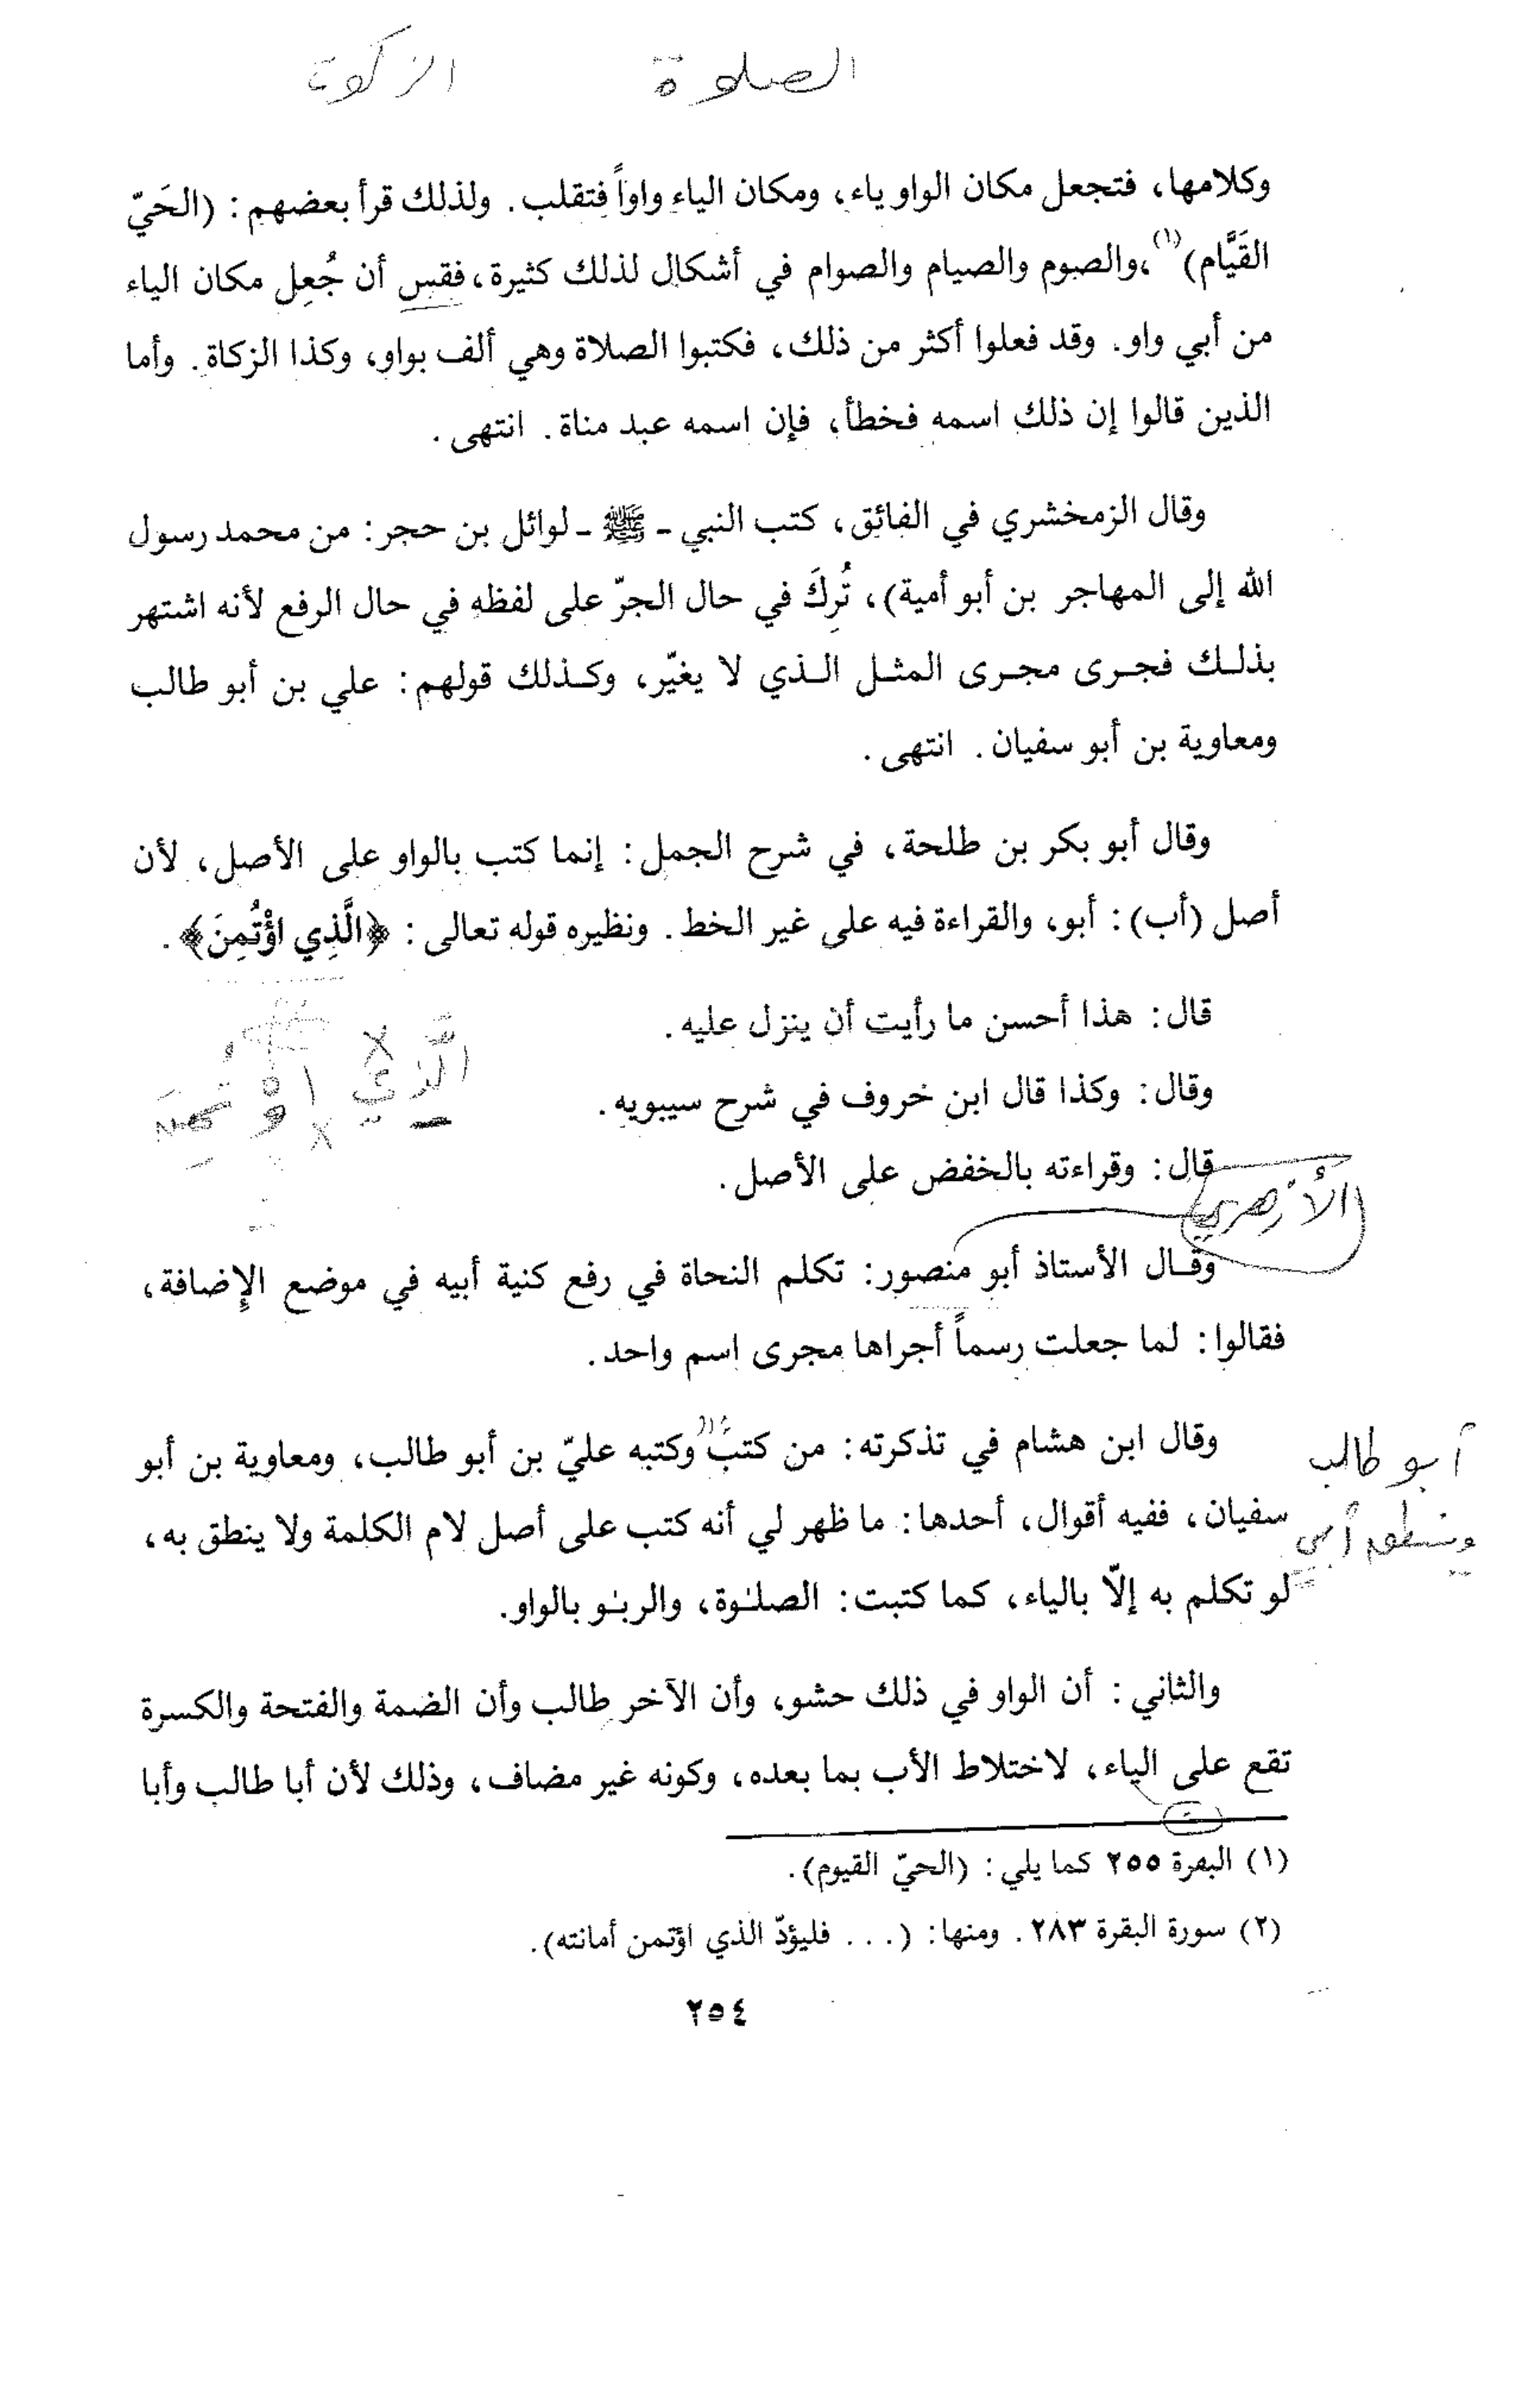 الصلوة الزكوة
وكلامها، فتجعل مكان الواو ياء، ومكان الياء واواً فتقلب. ولذلك قرأ بعضهم: (الحَيّ
القَيَّام)(١)،والصبوم والصيام والصوام في أشكال لذلك كثيرة،فقس أن جُعِل مكان الياء
من أبي واو. وقد فعلوا أكثر من ذلك، فكتبوا الصلاة وهي ألف بواو، وكذا الزكاة. وأما
الذين قالوا إن ذلك اسمه فخطأ، فإن اسمه عبد مناة. انتهى.
وقال الزمخشري في الفائق، كتب النبي ـ ﷺ ـ لوائل بن حجر: من محمد رسول
الله إلى المهاجر بن أبو أمية)، تُرِكَ في حال الجرّ على لفظه في حال الرفع لأنه اشتهر
بذلك فجرى مجرى المثل الذي لا يغيّر، وكذلك قولهم: علي بن أبو طالب
ومعاوية بن أبو سفيان. انتهى.
وقال أبو بكر بن طلحة، في شرح الجمل: إنما كتب بالواو على الأصل، لأن
أصل (أب): أبو، والقراءة فيه على غير الخط. ونظيره قوله تعالى: ﴿الَّذِي اؤْتُمِنَ﴾.
قال: هذا أحسن ما رأيت أن ينزل عليه.
الَّذِي اؤْتُمِنَ
وقال: وكذا قال ابن خروف في شرح سيبويه.
قال: وقراءته بالخفض على الأصل.
الأزهري
وقال الأستاذ أبو منصور: تكلم النحاة في رفع كنية أبيه في موضع الإضافة،
فقالوا: لما جعلت رسماً أجراها مجرى اسم واحد.
وقال ابن هشام في تذكرته: من كتب وكتبه عليّ بن أبو طالب، ومعاوية بن أبو
أبو طالب
سفيان، ففيه أقوال، أحدها: ما ظهر لي أنه كتب على أصل لام الكلمة ولا ينطق به،
وينطق أبي
لو تكلم به إلّا بالياء، كما كتبت: الصلوٰة، والربوٰ بالواو.
والثاني: أن الواو في ذلك حشو، وأن الآخر طالب وأن الضمة والفتحة والكسرة
تقع على الياء، لاختلاط الأب بما بعده، وكونه غير مضاف، وذلك لأن أبا طالب وأبا
(١) البقرة ٢٥٥ كما يلي: (الحيّ القيوم).
(٢) سورة البقرة ٢٨٣. ومنها: (... فليؤدّ الذي اؤتمن أمانته).
٢٥٤